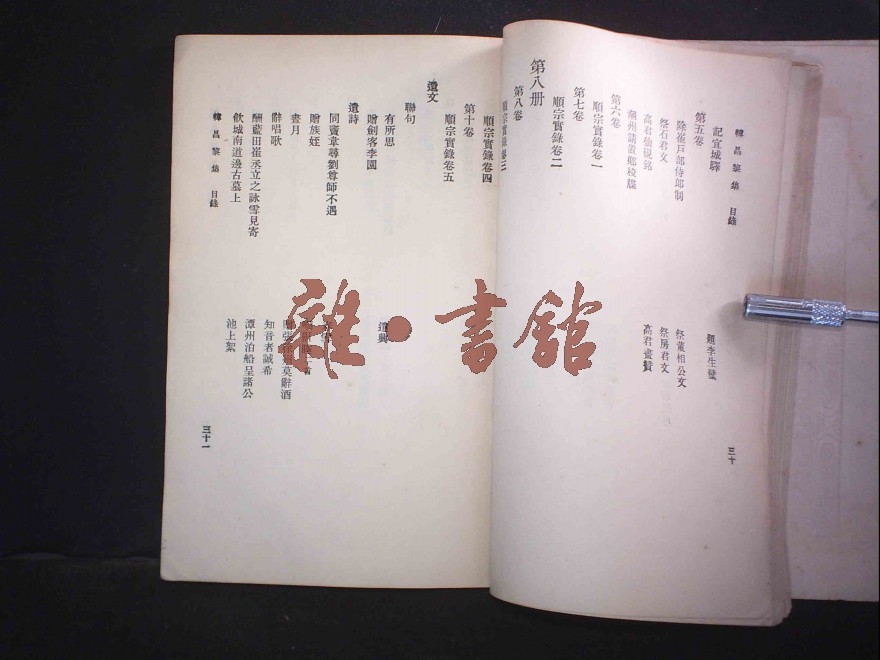 韓昌黎集 目錄
三十
記宜城驛
題李生壁
第五卷
除崔戶部侍郎制
祭董相公文
祭石君文
祭房君文
高君仙硯銘
高君畫贊
潮州請置鄉校牒
第六卷
順宗實錄卷一
第七卷
順宗實錄卷二
第八册
第八卷
順宗實錄卷三
順宗實錄卷四
第十卷
順宗實錄卷五
遺文
聯句
有所思
遣興
贈劍客李園
遺詩
同竇韋尋劉尊師不遇
贈族姪
晝月
莫辭酒
辭唱歌
知音者誠希
酬藍田崔丞立之詠雪見寄
潭州泊船呈諸公
飲城南道邊古墓上
池上絮
韓昌黎集 目錄
三十一
雜·書館